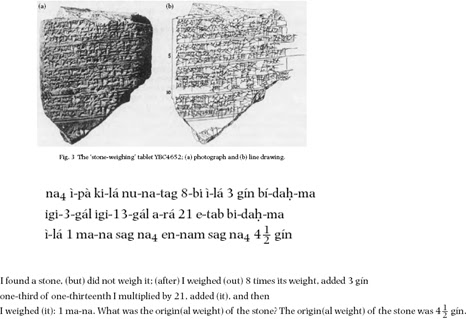 (a)
(b)
5
10
Fig. 3 The 'stone-weighing' tablet YBC4652; (a) photograph and (b) line drawing.
na₄ ì-pà ki-lá nu-na-tag 8-bi ì-lá 3 gín bí-daḫ-ma
igi-3-gál igi-13-gál a-rá 21 e-tab bi-daḫ-ma
ì-lá 1 ma-na sag na₄ en-nam sag na₄ 4½ gín
I found a stone, (but) did not weigh it; (after) I weighed (out) 8 times its weight, added 3 gín
one-third of one-thirteenth I multiplied by 21, added (it), and then
I weighed (it): 1 ma-na. What was the origin(al weight) of the stone? The origin(al weight) of the stone was 4½ gín.